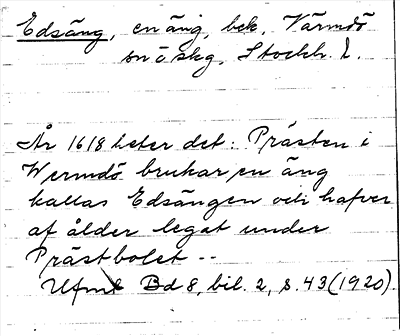 Edsäng, en äng, bek. Värmdö
sn o skg, Stockh. L.
År 1618 heter det: Prästen i
Wermdö brukar en äng
kallas Edsängen och hafver
af ålder legat under
Prästbolet --
Ufmt Bd 8, bil. 2, s. 43 (1920).